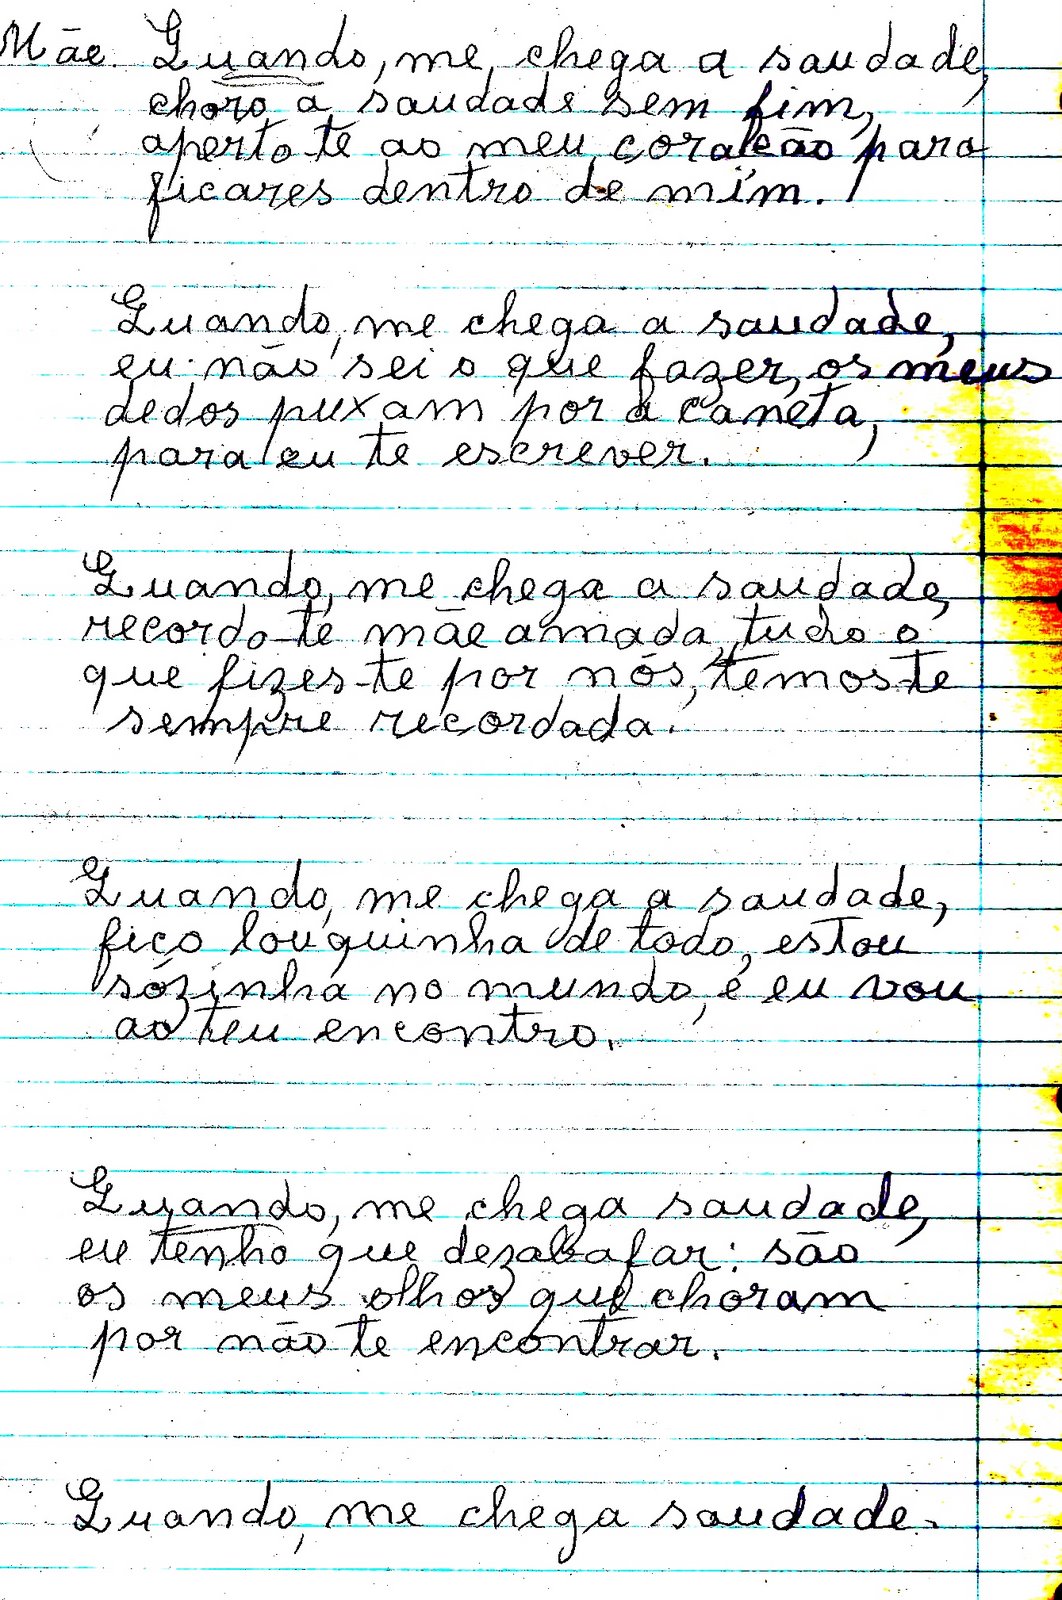 Mãe. Quando, me, chega a saudade,
choro a saudade sem fim,
aperto-te ao meu coração para
ficares dentro de mim.
Quando, me chega a saudade,
eu não sei o que fazer, os meus
dedos puxam por a caneta,
para eu te escrever.
Quando, me chega a saudade,
recordo-te mãe amada, tudo o
que fizes-te por nós, temos-te
sempre recordada.
Quando, me chega a saudade,
fico louquinha de todo, estou
sózinha no mundo, e eu vou
ao teu encontro.
Quando, me chega saudade,
eu tenho que dezabafar: são
os meus olhos que choram
por não te encontrar.
Quando, me chega saudade.